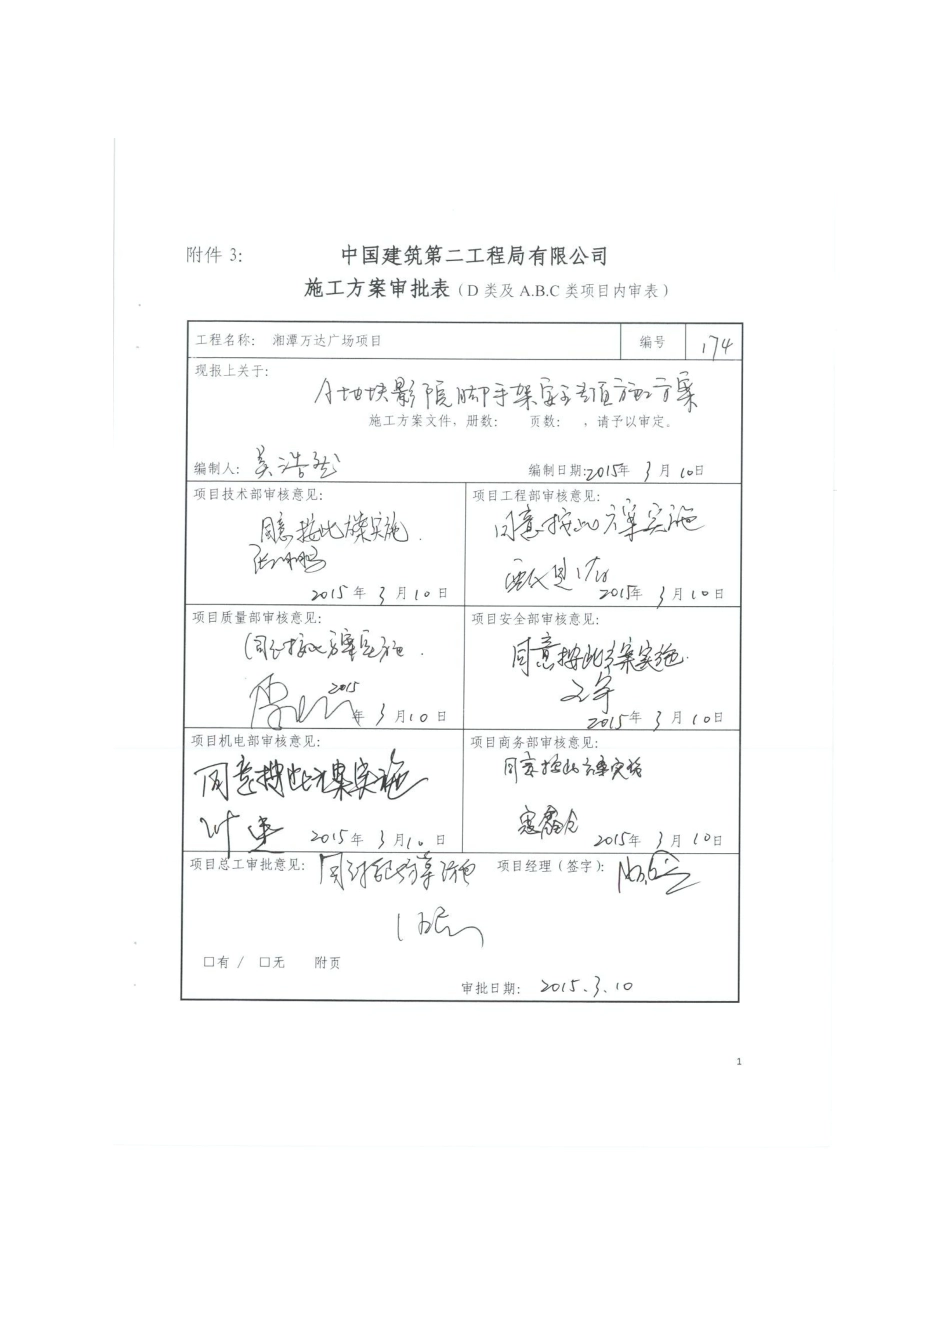 附件 3： 中国建筑第二工程局有限公司
施工方案审批表（D 类及 A.B.C 类项目内审表）
工程名称： 湘潭万达广场项目 编号 174
现报上关于：
A地块影院脚手架安全专项施工方案
施工方案文件，册数： 页数： ，请予以审定。
编制人：吴浩然 编制日期:2015年 3月 10日
项目技术部审核意见： 项目工程部审核意见：
同意按此方案实施. 同意按此方案实施
2015年 3月10日 2015年 3月10日
项目质量部审核意见： 项目安全部审核意见：
同意按此方案实施. 同意按此方案实施.
2015年 3月10日 2015年 3月10日
项目机电部审核意见： 项目商务部审核意见：
同意按此方案实施 同意按此方案实施
2015年 3月10日 2015年 3月10日
项目总工审批意见： 项目经理（签字）：
□有 / □无 附页
审批日期： 2015.3.10
1